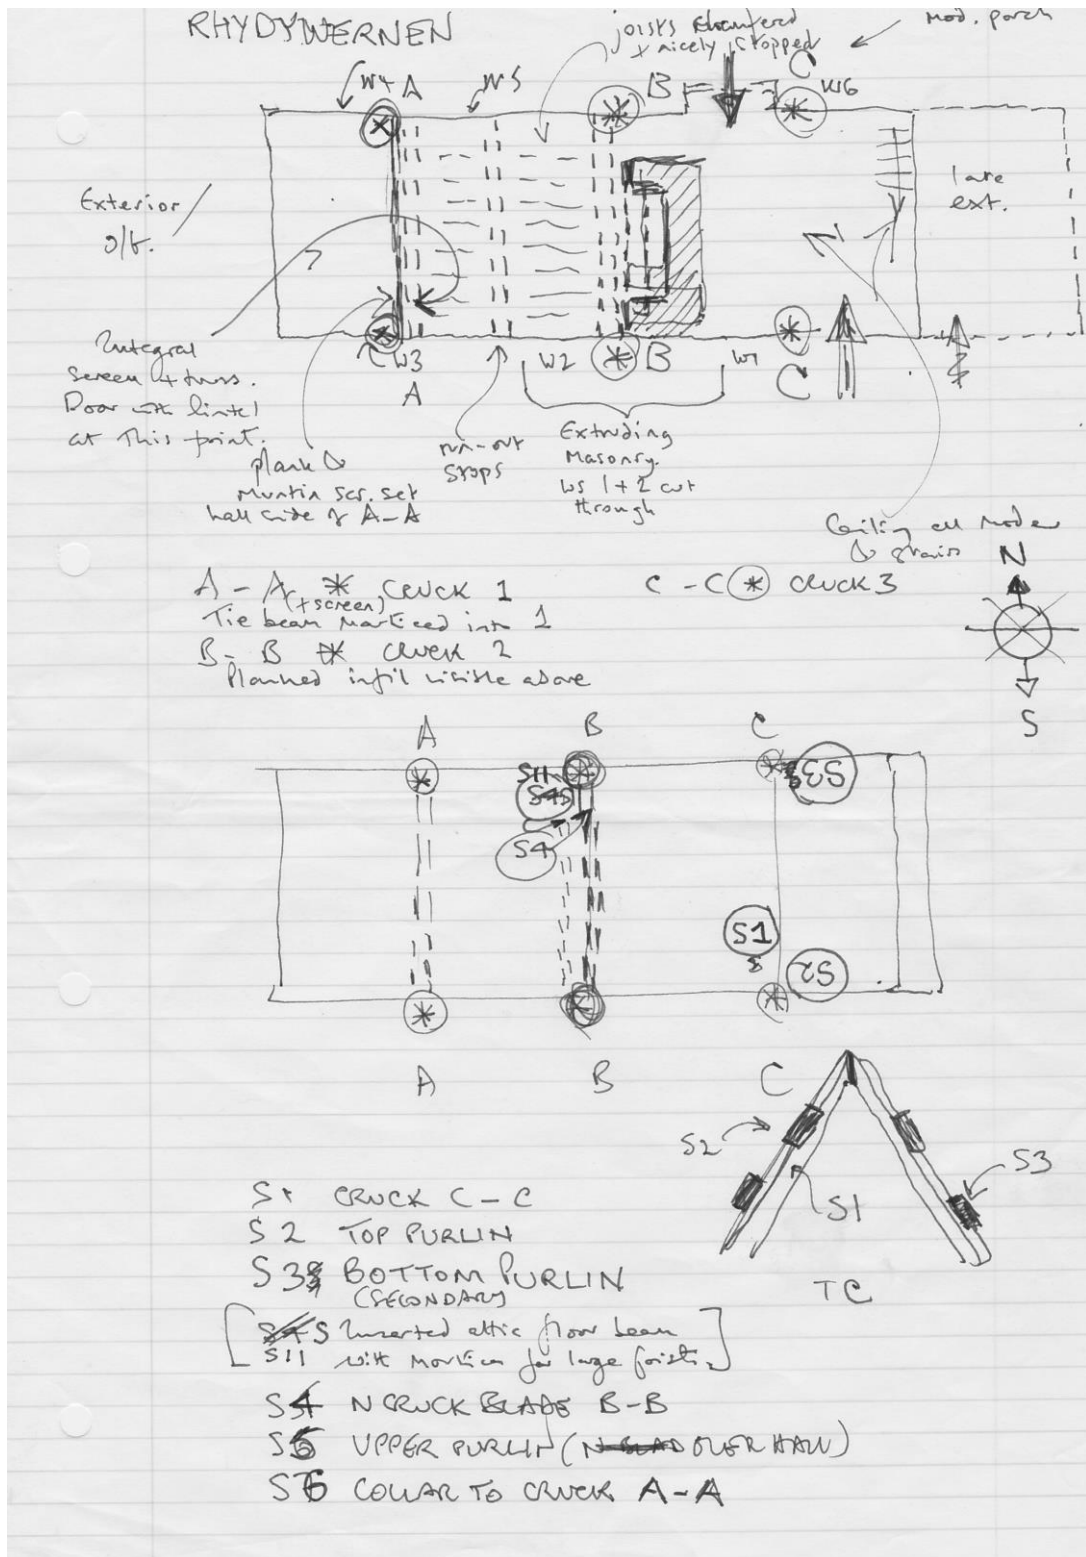 RHYDYWERNEN
joists chamfered
+ nicely stopped
Mod. porch
W4 A W5 B C W6
Exterior
O/F.
late
ext.
W3 W2 B W1 C
A
Integral
Screen + truss.
Door with lintel
at this point.
plank &
Muntin scr. set
hall side of A-A
run-out
stops
Extruding
Masonry.
Ws 1+2 cut
through
Ceiling all modern
& stairs
N
S
A - A * CRUCK 1
(+ screen)
Tie beam morticed into 1
B - B * CRUCK 2
Planked infil visible above
C - C * CRUCK 3
A B C
S11
S4
S3
S1
S2
A B C
S2
S3
S1
TC
S1 CRUCK C-C
S2 TOP PURLIN
S3 BOTTOM PURLIN
(SECONDARY)
[Inserted attic floor beam
S11 with mortices for large joists.]
S4 N CRUCK BLADE B-B
S5 UPPER PURLIN (OVER HALL)
S6 COLLAR TO CRUCK A-A